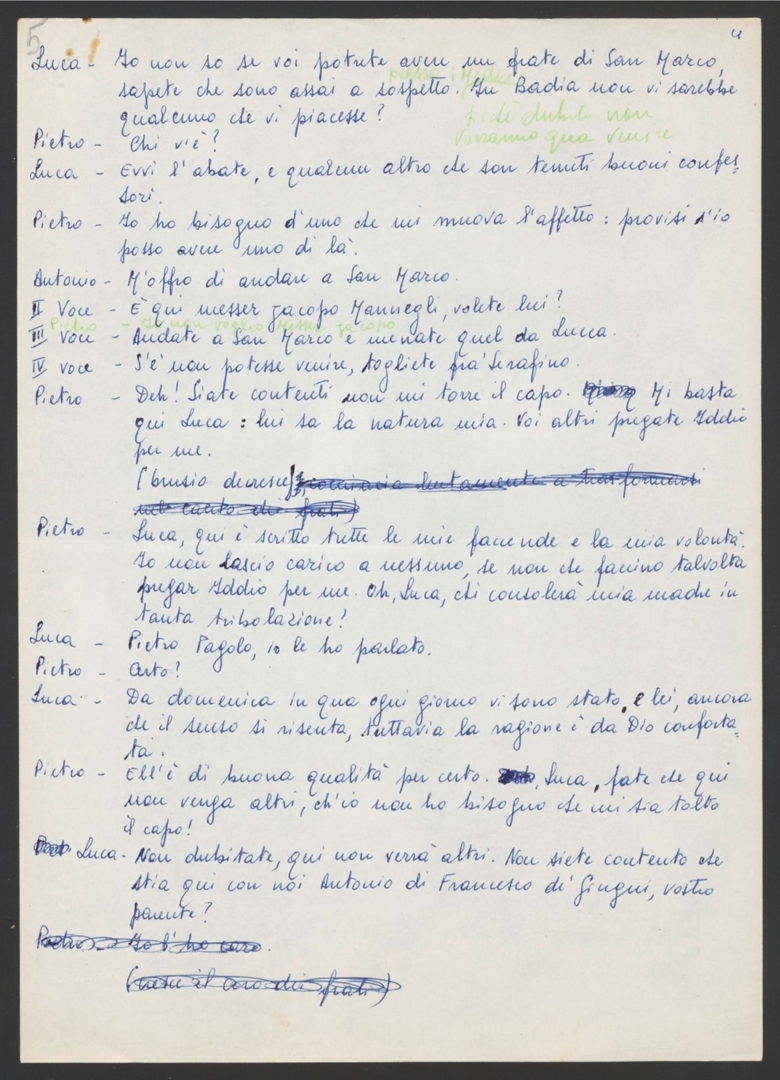 5
4
Luca - Io non so se voi potrete avere un frate di San Marco,
sapete che sono assai a sospetto. In Badia non vi sarebbe
presso i Medici
qualcuno che vi piacesse?
dubito non
vorranno qua venire
Pietro - Chi v'è?
Luca - Evvi l'abate, e qualcun altro che son tenuti buoni confes-
sori.
Pietro - Io ho bisogno d'uno che mi muova l'affetto: provisi s'io
posso avere uno di là.
Antonio - M'offro di andare a San Marco.
II Voce - È qui messer Jacopo Mannegli, volete lui?
Pietro - Io non voglio Messer Jacopo
III Voce - Andate a San Marco e menate quel da Lucca.
IV voce - S'e' non potesse venire, togliete fra' Serafino.
Pietro - Deh! Siate contenti non mi torre il capo. Mi basta
qui Luca: lui sa la natura mia. Voi altri pregate Iddio
per me.
(brusio decresce) comincia lentamente a trasformarsi
nel canto dei frati)
Pietro - Luca, qui è scritto tutte le mie facende e la mia volontà.
Io non lascio carico a nessuno, se non che faccino talvolta
pregar Iddio per me. Oh, Luca, chi consolerà mia madre in
tanta tribolazione?
Luca - Pietro Pagolo, io le ho parlato.
Pietro - Certo?
Luca - Da domenica in qua ogni giorno vi sono stato, e lei, ancora
che il senso si risenta, tuttavia la ragione è da Dio conforta-
ta.
Pietro - Ell'è di buona qualità per certo. Luca, fate che qui
non venga altri, ch'io non ho bisogno che mi sia tolto
il capo!
Luca - Non dubitate, qui non verrà altri. Non siete contento che
stia qui con noi Antonio di Francesco de' Giugni, vostro
parente?
Pietro - Io l'ho caro.
(cresce il coro dei frati)